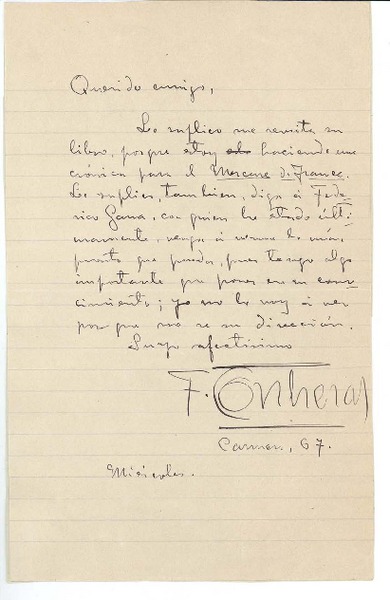 Querido amigo,
Le suplico me remita su
libro, porque estoy haciendo una
crónica para el Mercure de France.
Le suplico, también, diga á Fede-
rico Gana, con quien ha estado últi-
mamente, venga á verme lo más
pronto que pueda, pues tengo algo
importante que poner en su cono-
cimiento; yo no lo voy á ver
porque no se su dirección.
Suyo afectísimo
F. Contreras
Carmen, 67.
Miércoles.